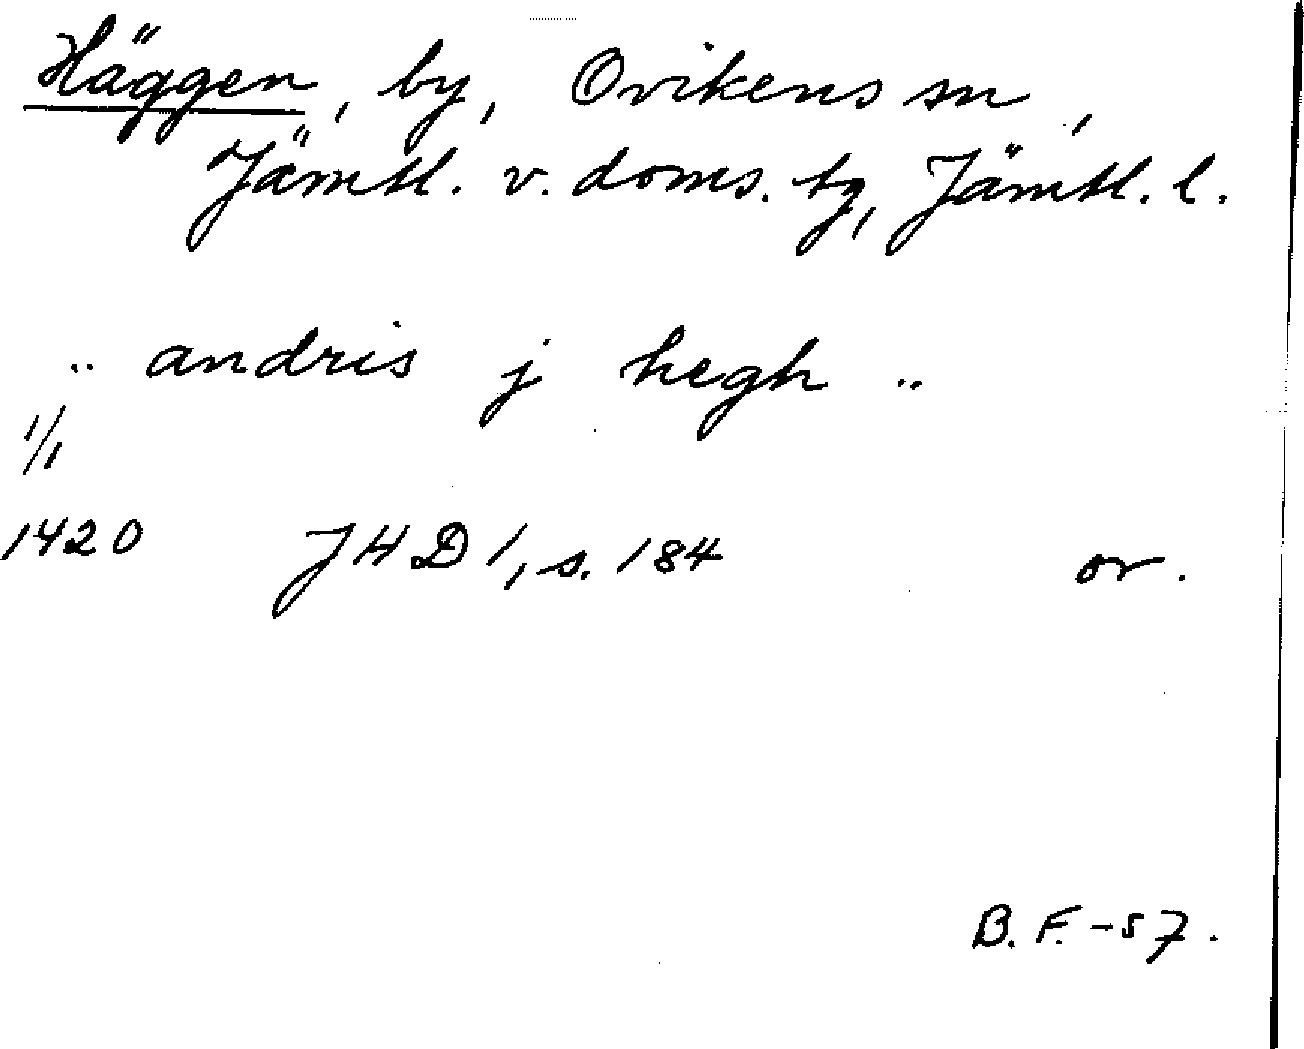 Häggen, by, Ovikens sn,
Jämtl. v. doms. tg, Jämtl. l.
.. andris j hegh ..
1/1
1420 JHD 1, s. 184 or.
B. F. -57.